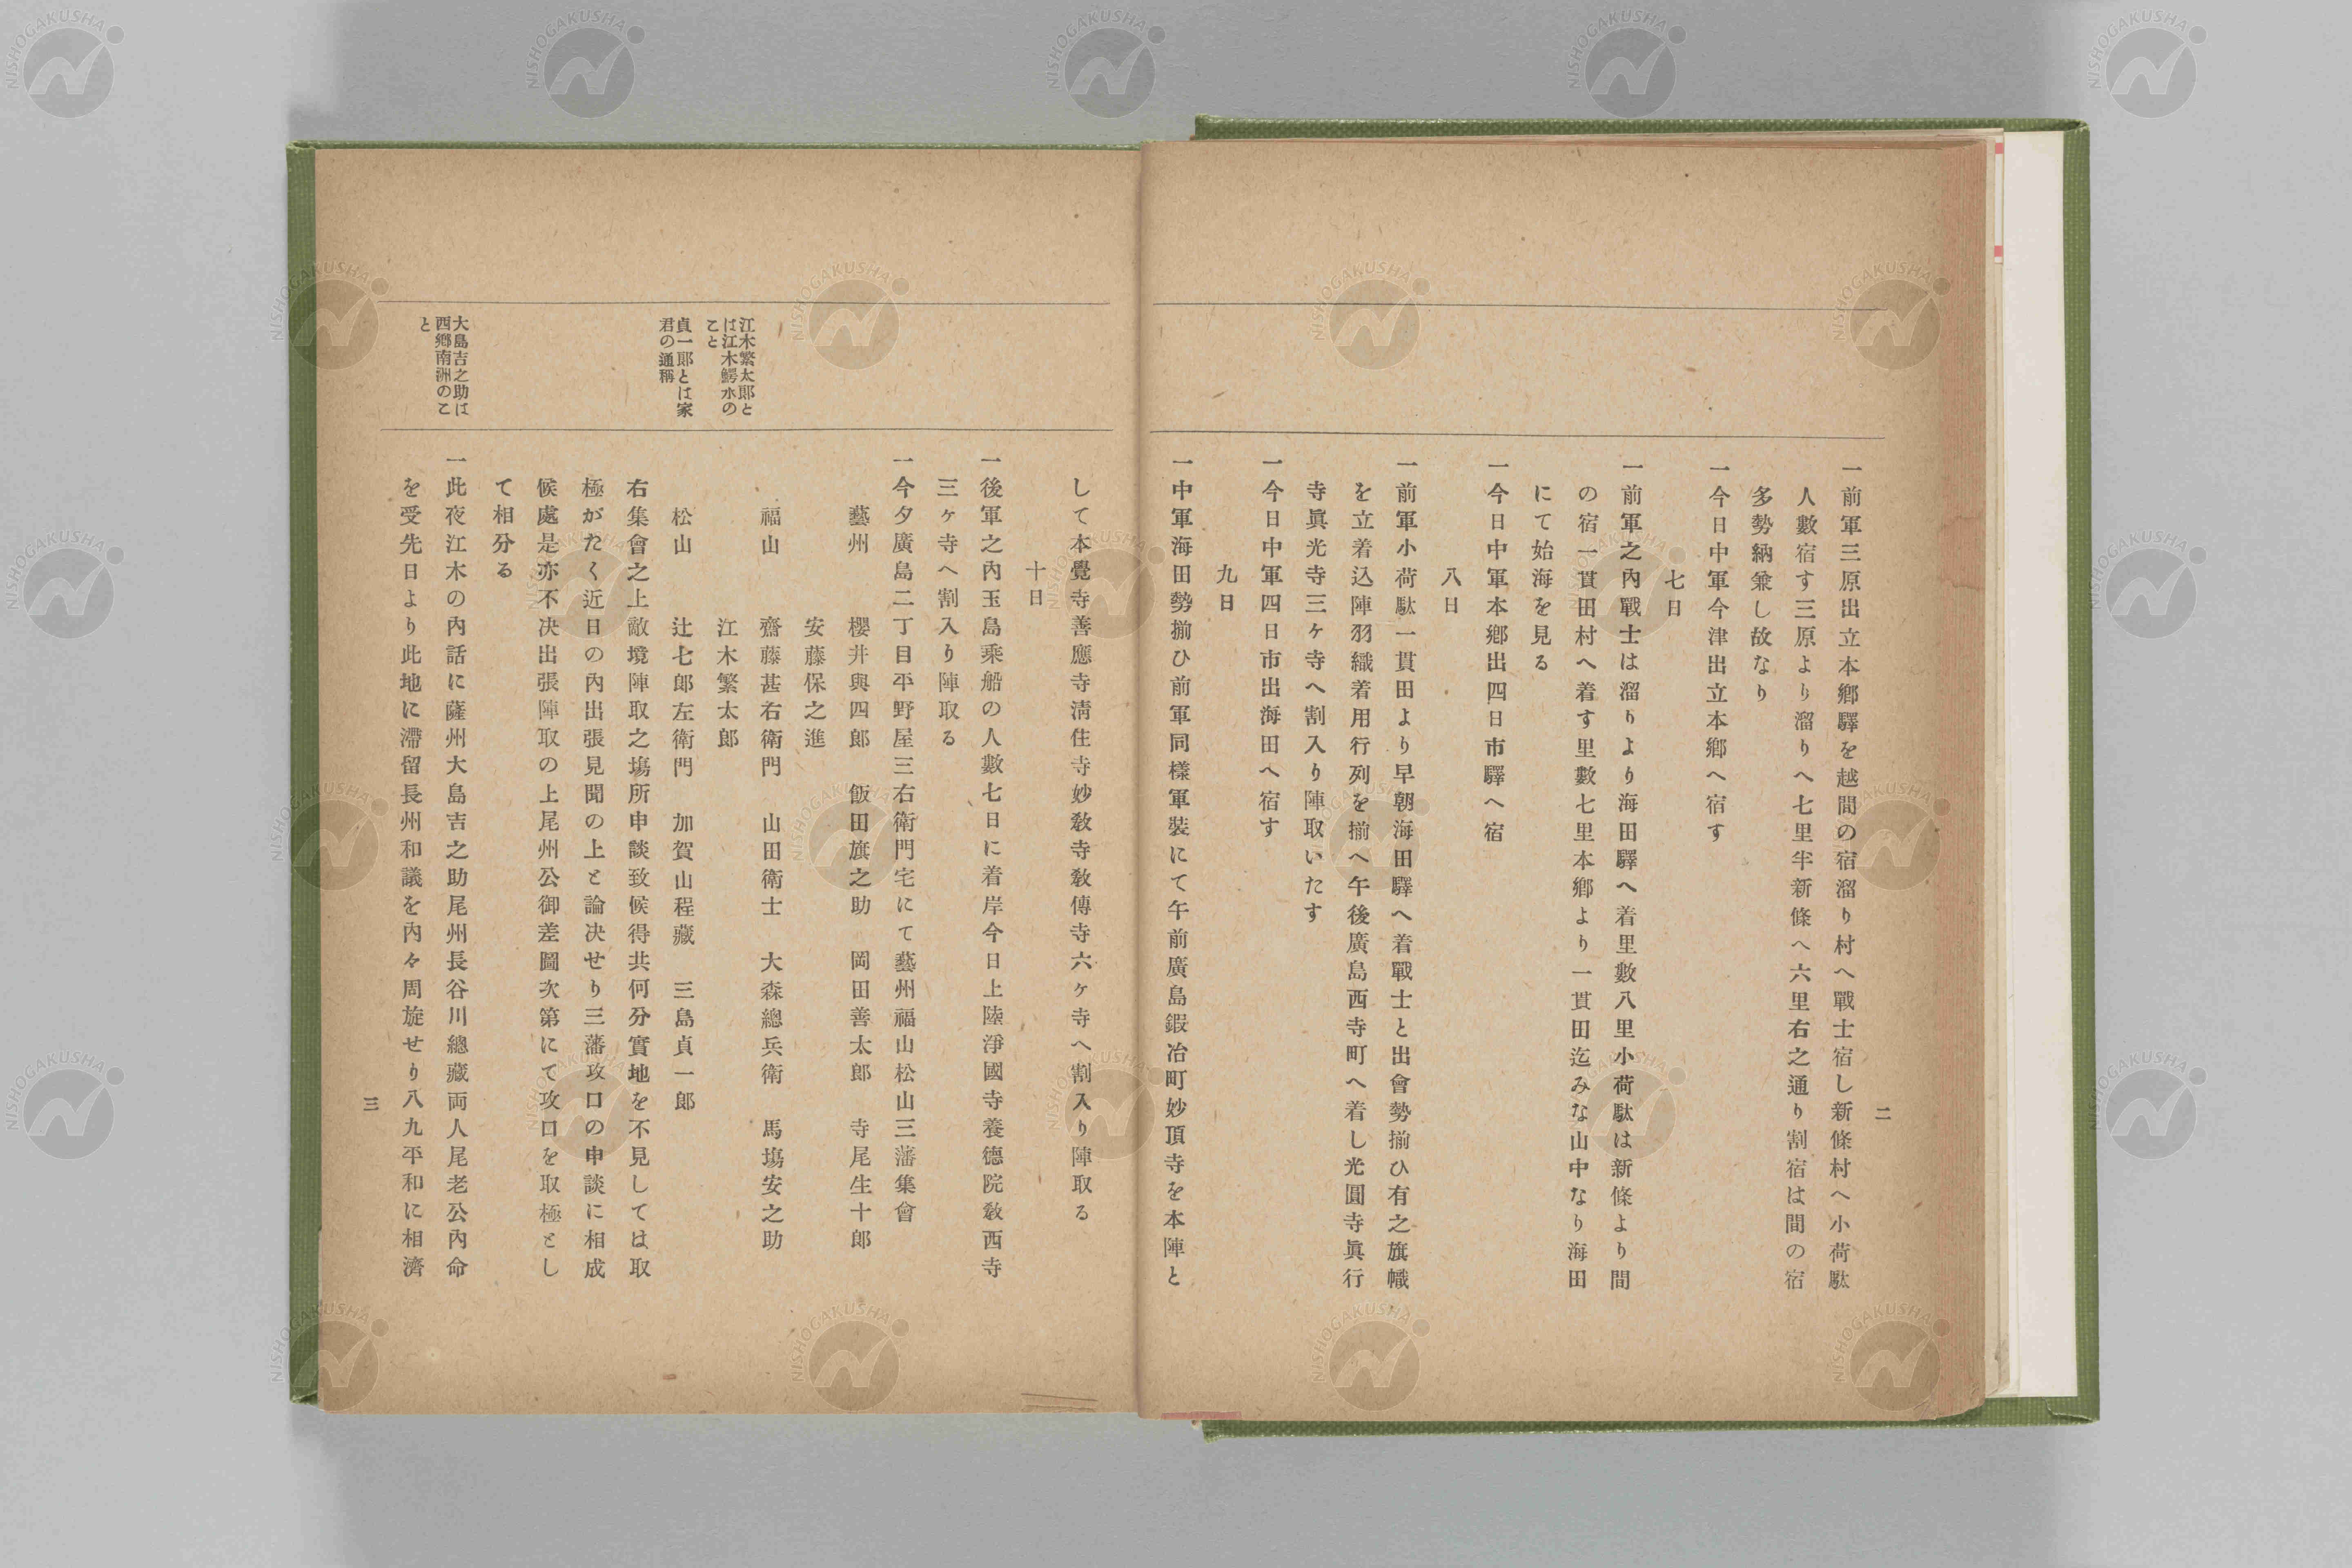 二
一前軍三原出立本鄕驛を越間の宿溜り村へ戰士宿し新條村へ小荷駄
人數宿す三原より溜りへ七里半新條へ六里右之通り割宿は間の宿
多勢納兼し故なり
一今日中軍今津出立本鄕へ宿す
七日
一前軍之內戰士は溜りより海田驛へ着里數八里小荷駄は新條より間
の宿一貫田村へ着す里數七里本鄕より一貫田迄みな山中なり海田
にて始海を見る
一今日中軍本鄕出四日市驛へ宿
八日
一前軍小荷駄一貫田より早朝海田驛へ着戰士と出會勢揃ひ有之旗幟
を立着込陣羽織着用行列を揃へ午後廣島西寺町へ着し光圓寺眞行
寺眞光寺三ヶ寺へ割入り陣取いたす
一今日中軍四日市出海田へ宿す
九日
一中軍海田勢揃ひ前軍同樣軍裝にて午前廣島鍜冶町妙頂寺を本陣と
して本覺寺善應寺淸住寺妙敎寺敎傳寺六ヶ寺へ割入り陣取る
十日
一後軍之內玉島乘船の人數七日に着岸今日上陸淨國寺養德院敎西寺
三ヶ寺へ割入り陣取る
一今夕廣島二丁目平野屋三右衛門宅にて藝州福山松山三藩集會
藝州 櫻井與四郎 飯田旗之助 岡田善太郎 寺尾生十郎
安藤保之進
福山 齋藤甚右衛門 山田衛士 大森總兵衛 馬塲安之助
江木繁太郎
松山 辻七郎左衛門 加賀山程藏 三島貞一郎
右集會之上敵境陣取之塲所申談致候得共何分實地を不見しては取
極がたく近日の內出張見聞の上と論決せり三藩攻口の申談に相成
候處是亦不決出張陣取の上尾州公御差圖次第にて攻口を取極とし
て相分る
一此夜江木の內話に薩州大島吉之助尾州長谷川總藏両人尾老公內命
を受先日より此地に滯留長州和議を內々周旋せり八九平和に相濟
江木繁太郞と
は江木鰐水の
こと
貞一郞とは家
君の通稱
大島吉之助は
西鄕南洲のこ
と
三
NISHOGAKUSHA